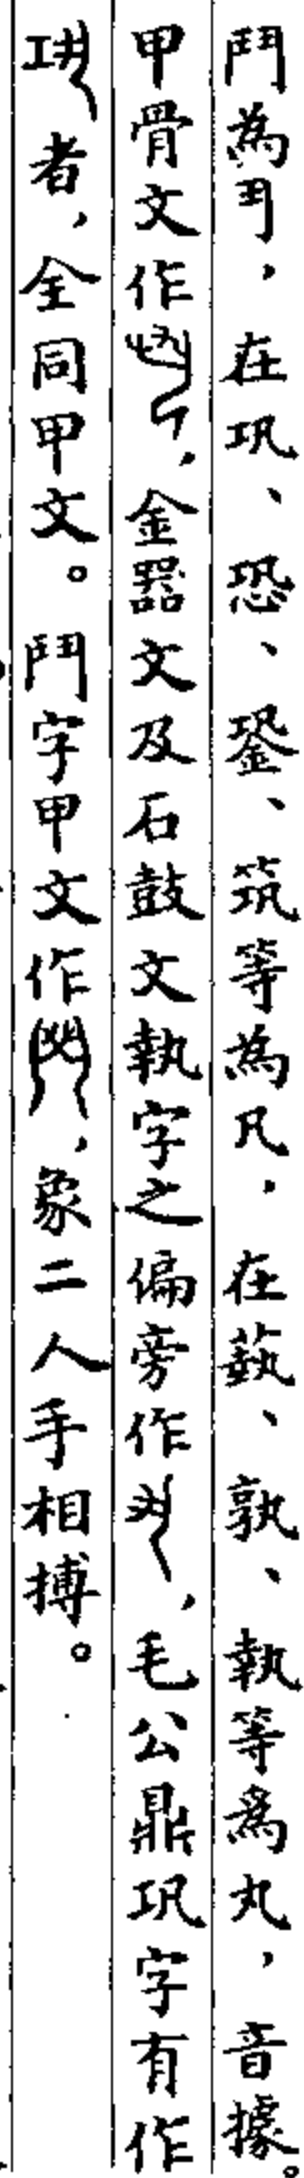 鬥為鬥,在巩、恐、銎、筑等為凡,在蓺、孰、執等為丸,音據。
甲骨文作,金器文及石鼓文執字之偏旁作,毛公鼎巩字有作
者,全同甲文。鬥字甲文作,象二人手相搏。